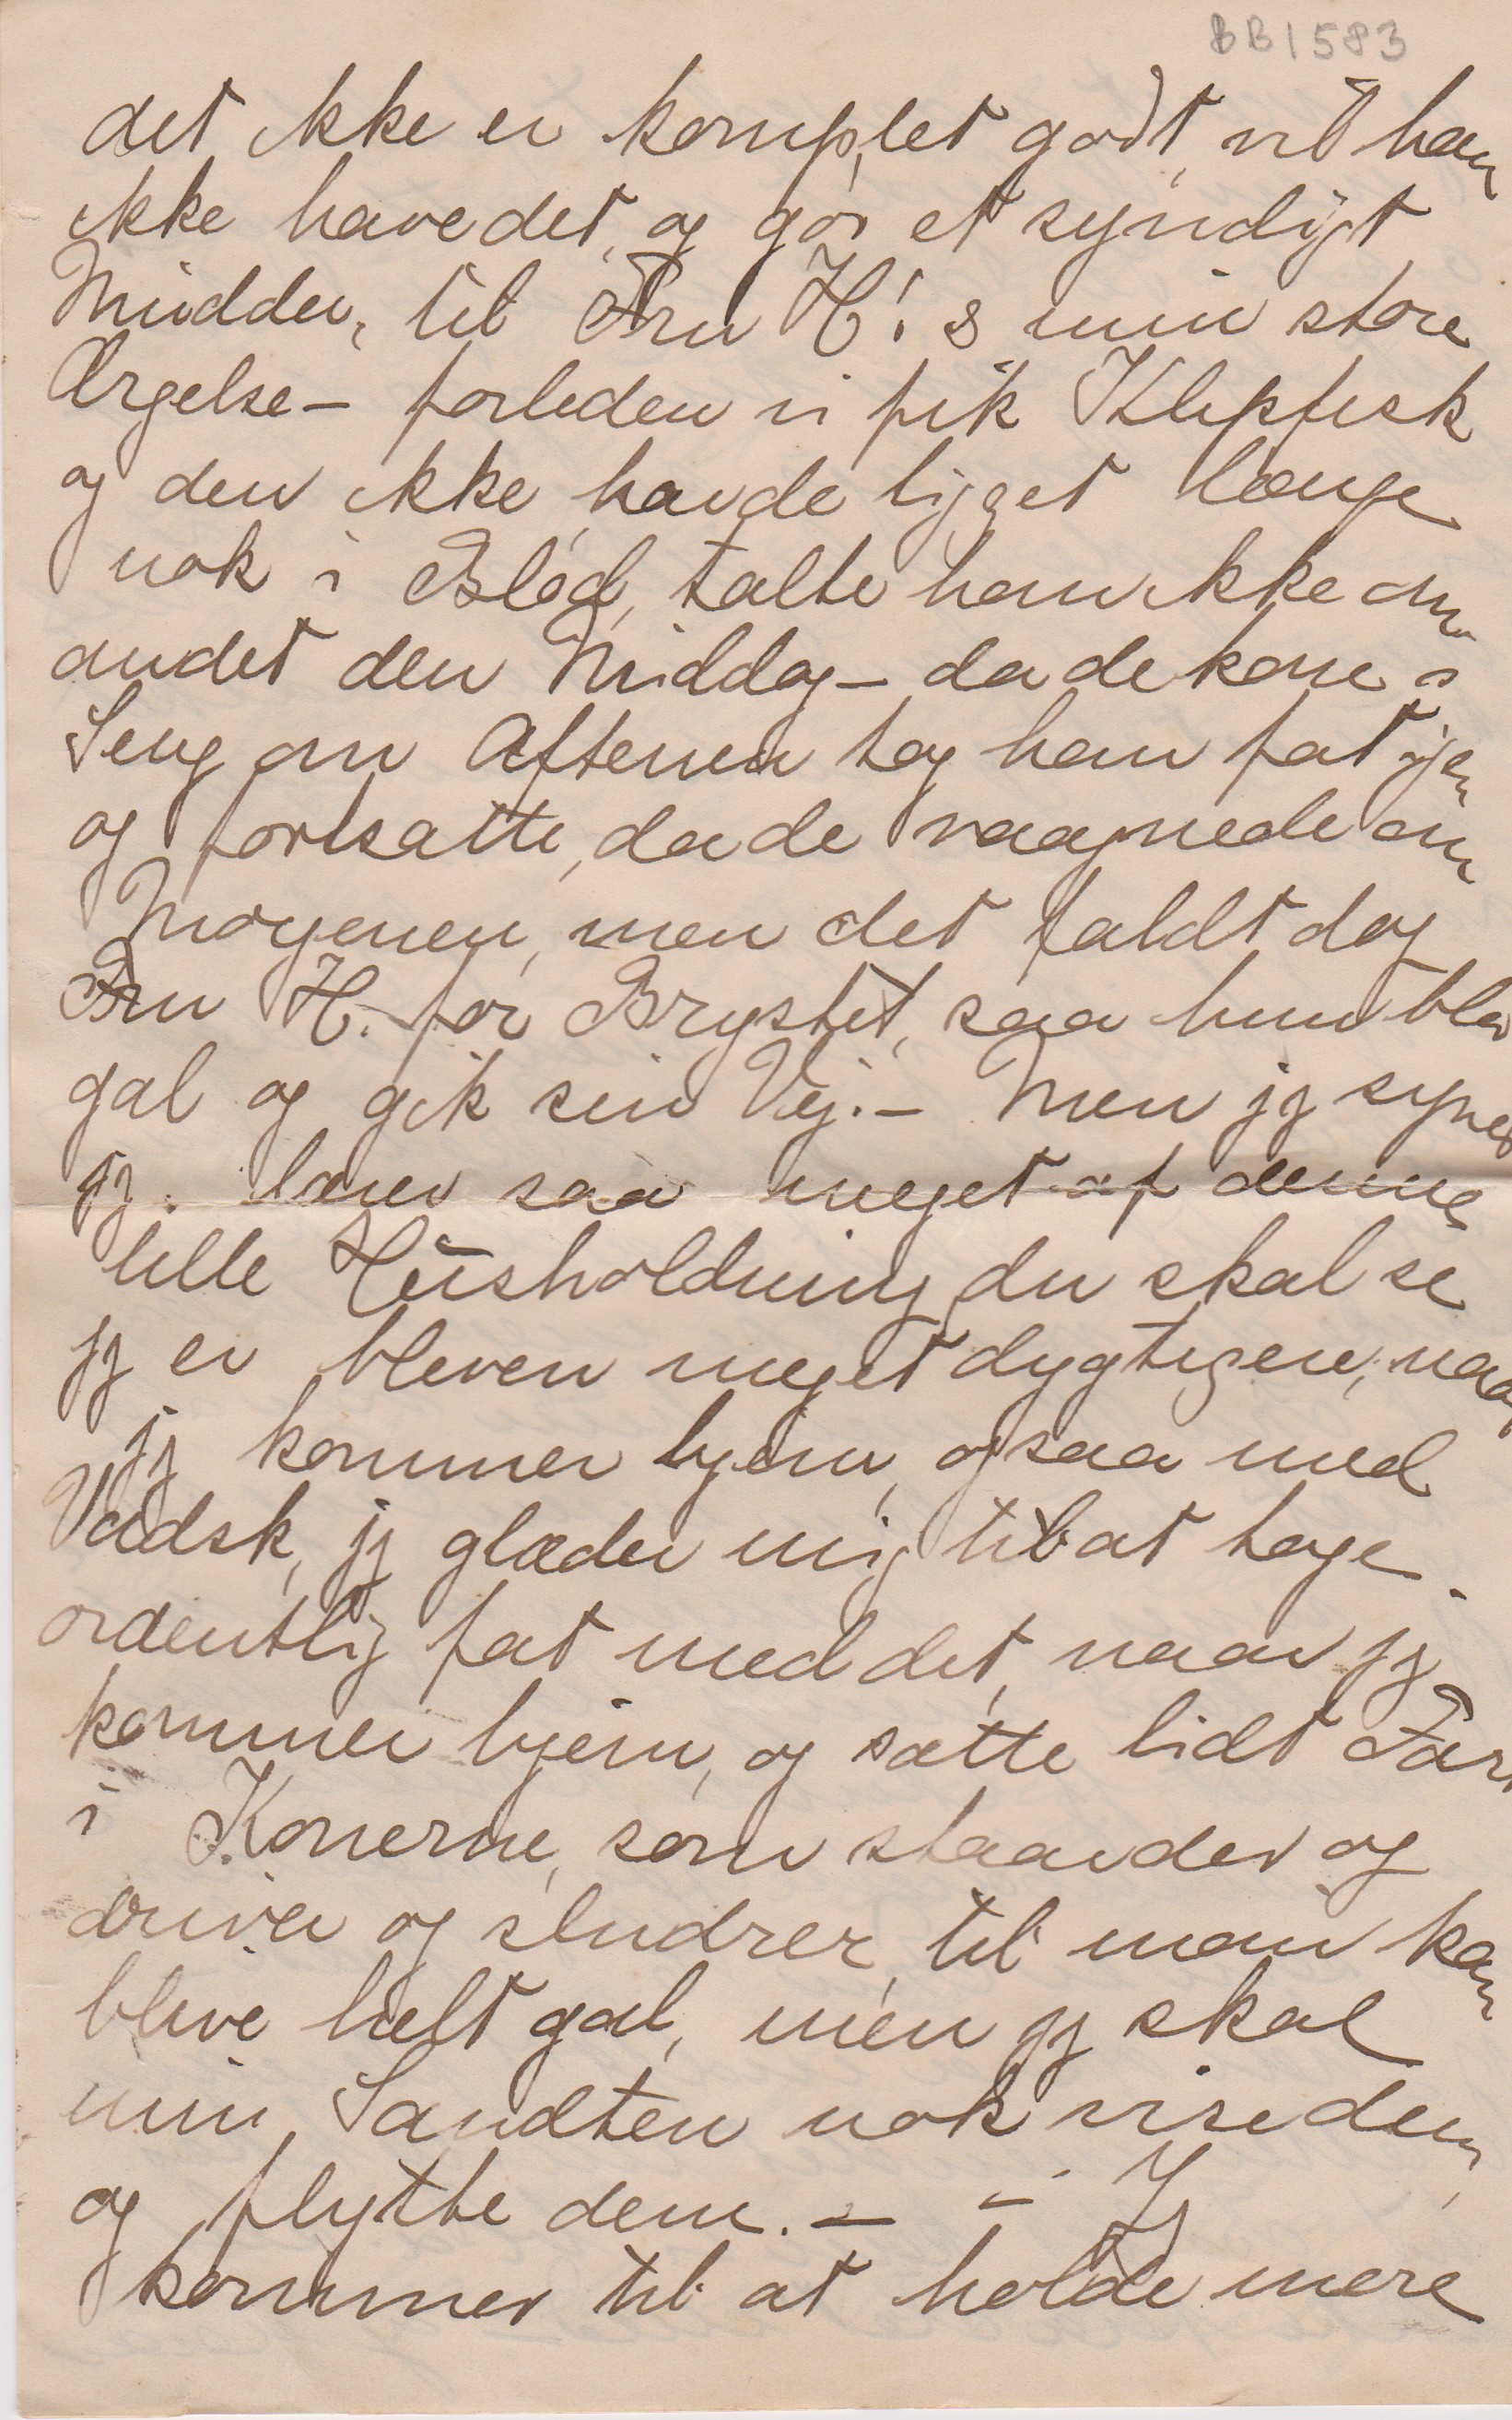 BB1583
det ikke er komplet godt, vil han
ikke have det, og gør et syndigt
Mudder, til Fru H's min store
Ærgelse – forleden vi fik Klipfisk
og den ikke havde ligget længe
nok i Blød, talte han ikke om
andet den Middag – da de kom i
Seng om Aftenen tog han fat igen
og fortsatte, da de vaagnede om
Morgenen, men det faldt dog
Fru H. for Brystet, saa hun blev
gal og gik sin Vej. – Men jeg synes
jeg lærer saa meget af denne
lille Husholdning, du skal se
jeg er bleven meget dygtigere, naar
jeg kommer hjem, ogsaa med
Vadsk, jeg glæder mig til at tage
ordentlig fat med det, naar jeg
kommer hjem, og sætte lidt Fart
i Konerne, som staander og
driver og sludrer, til man kan
blive helt gal, men jeg skal
min Sandten nok vise dem
og flytte dem. – – Jeg
kommer til at holde mere